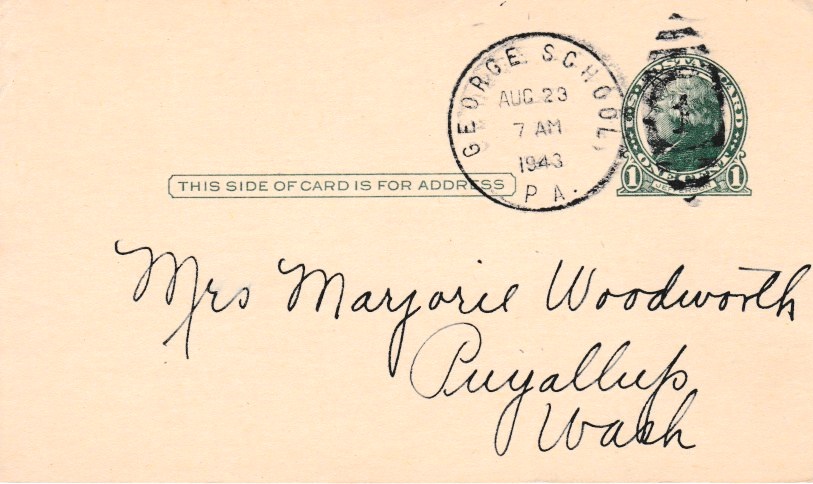 GEORGE SCHOOL
AUG 23
7 AM
1943
PA.
U.S. POSTAL CARD
ONE CENT
1 JEFFERSON 1
THIS SIDE OF CARD IS FOR ADDRESS
Mrs Marjorie Woodworth
Puyallup
Wash